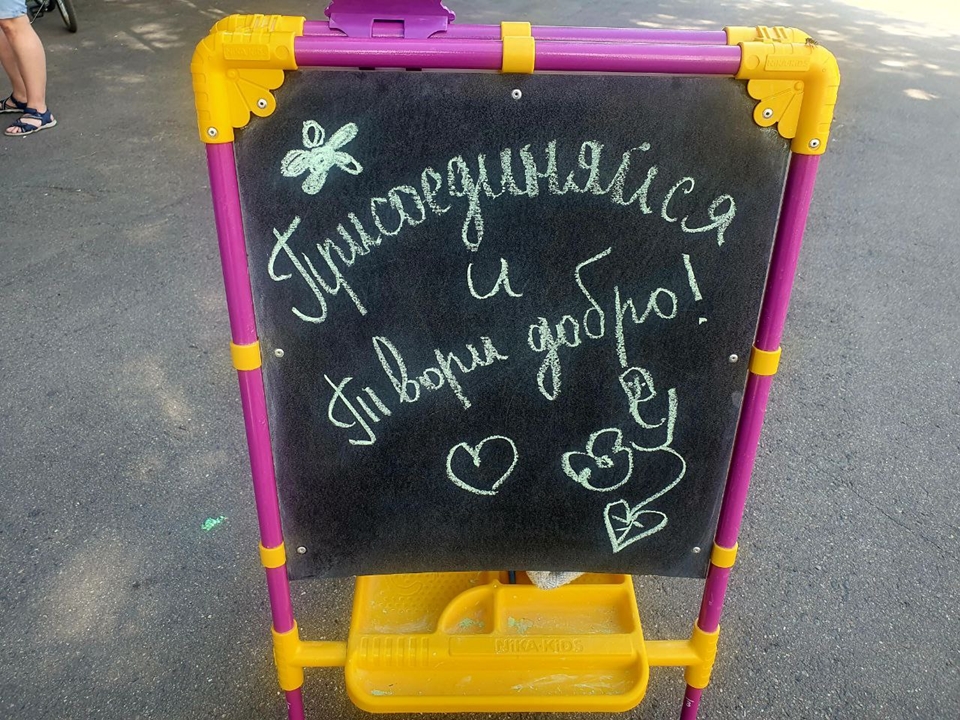 Присоединяйся
и
Твори добро!
NIKA-KIDS